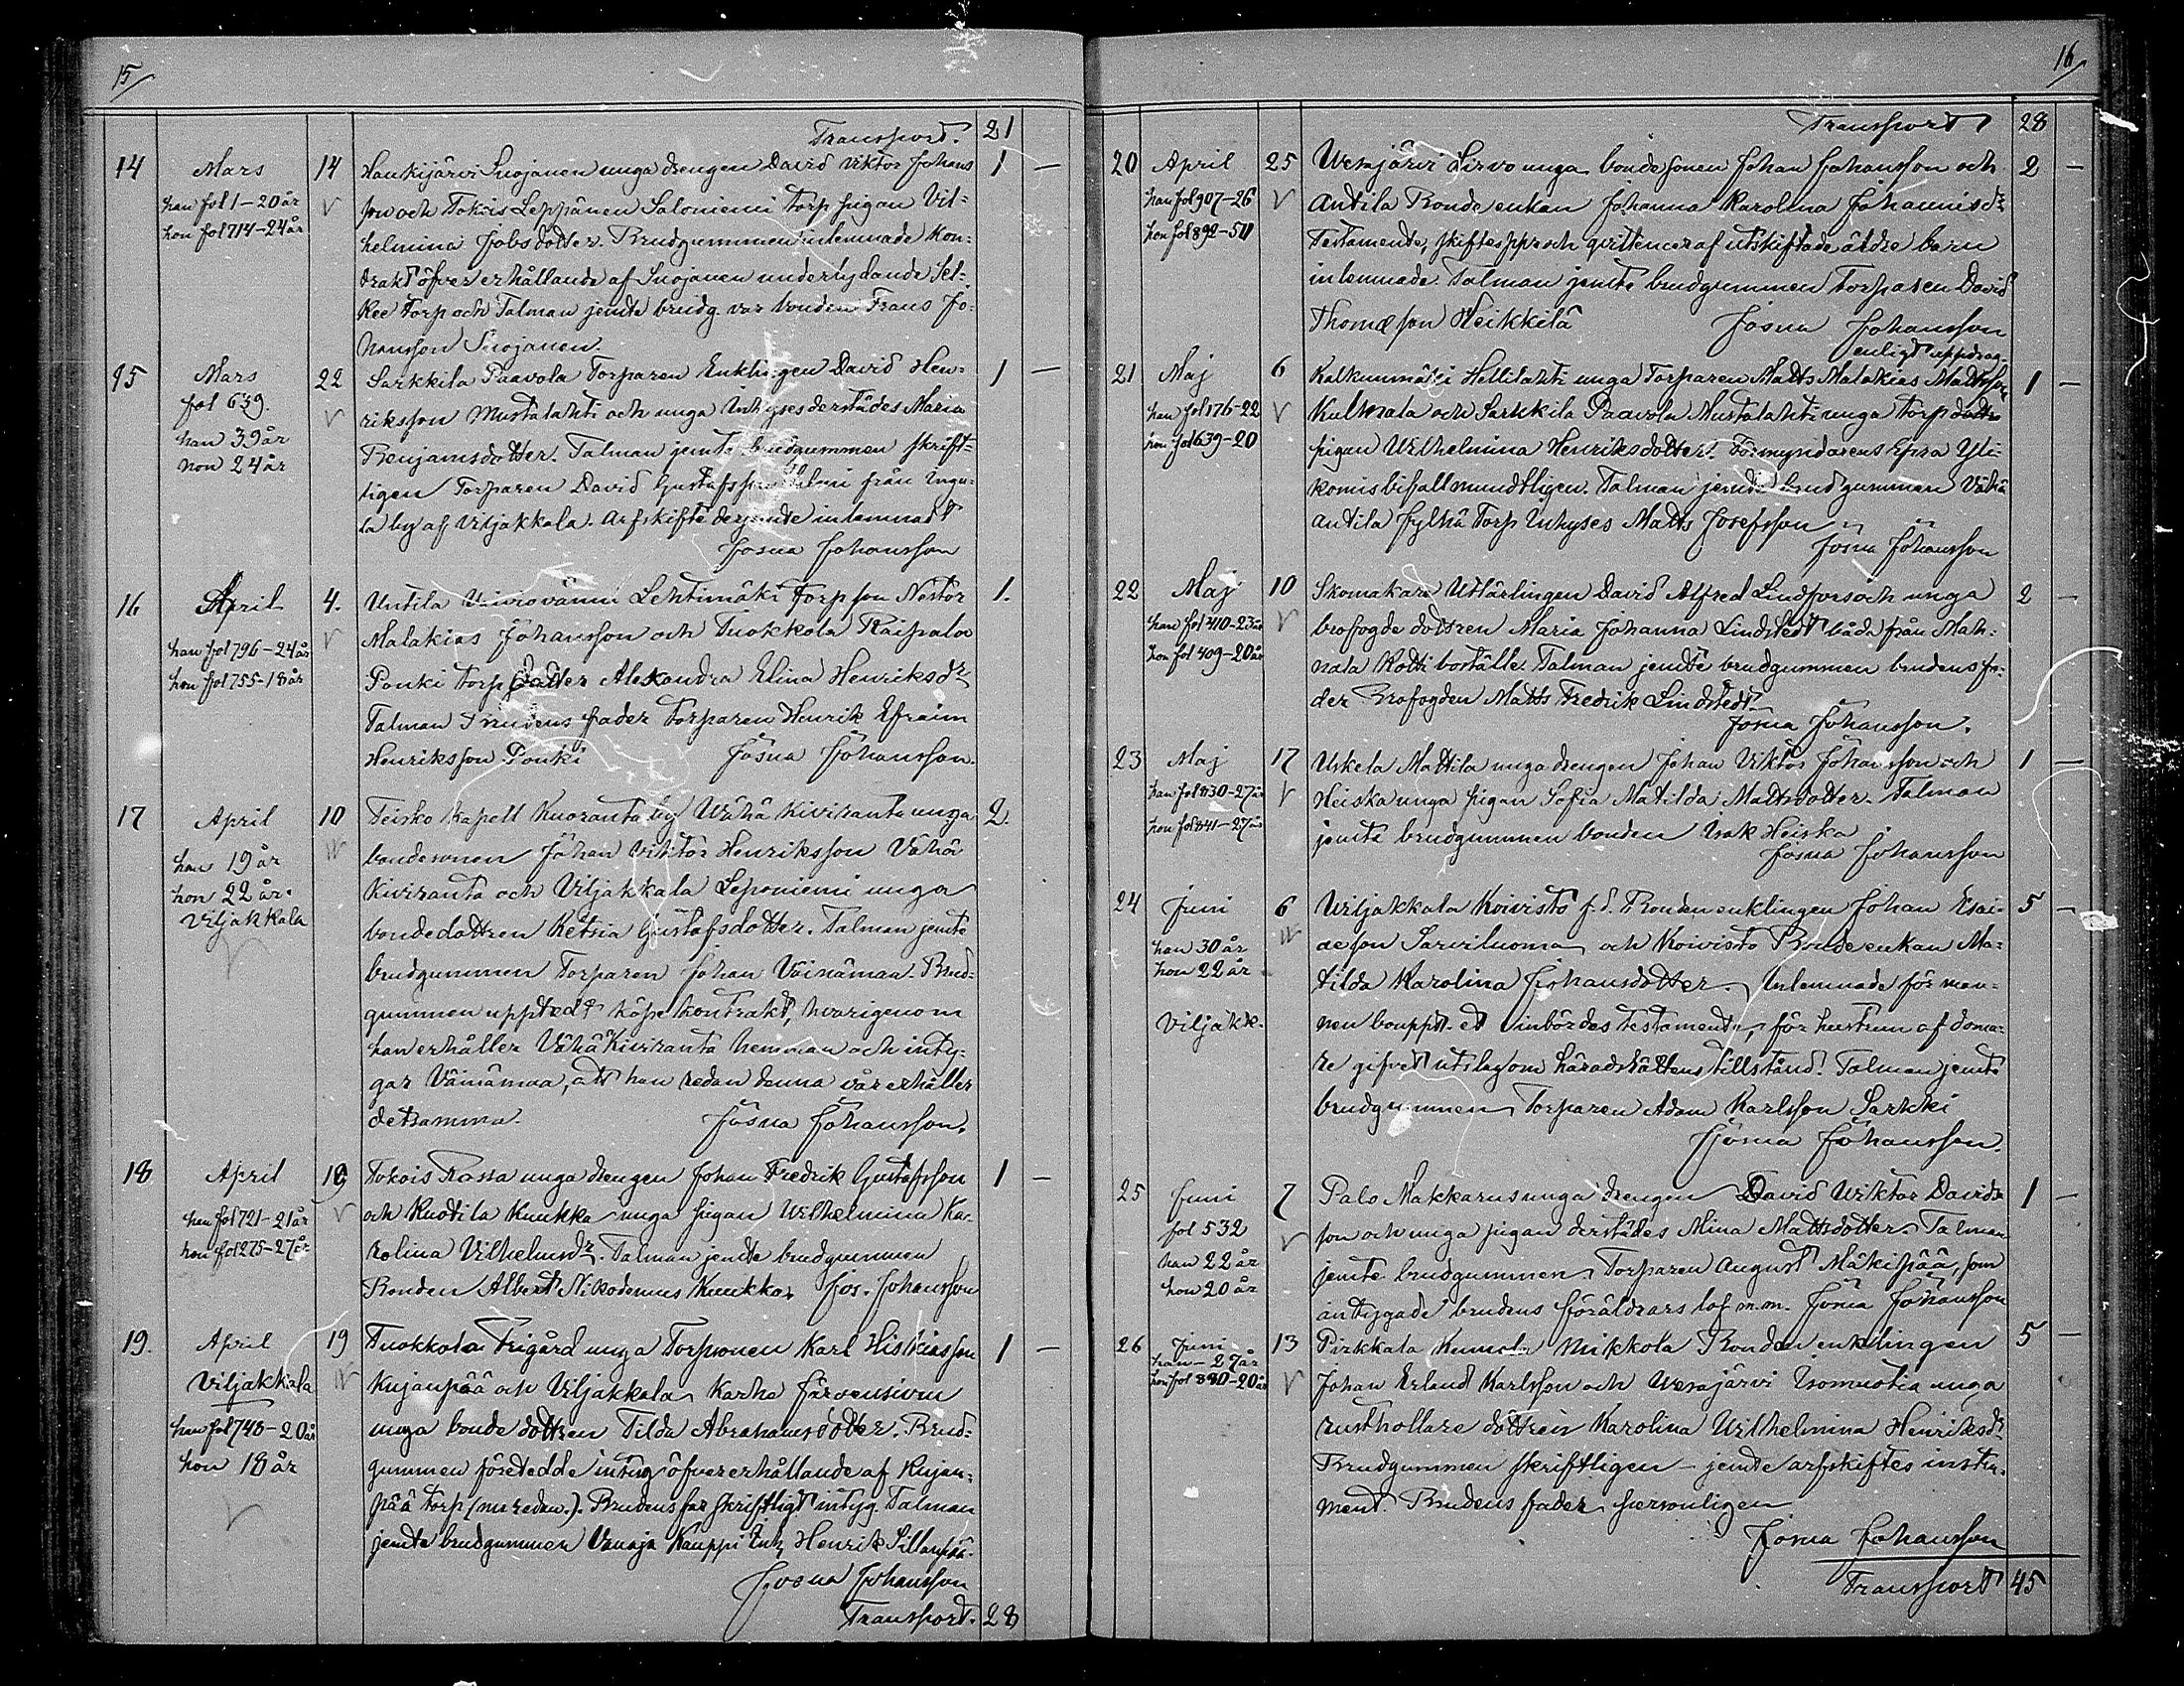 15
Transport. 21
14 Mars 14 Haukijärvi Suojanen unga drengen David Viktor Johans 1 —
han fol 1 - 20 år son och Tokois Leppänen Saloniemi torp pigan Vil=
hon fol 714 - 24 år helmina Jobsdotter. Brudgummen inlemnade kon=
trakt öfver erhållande af Suojanen underlydande Sel=
kee torp och Talman jemte brudg. var bonden Frans Jo=
hansson Suojanen.
15 Mars 22 Sarkkila Paavola Torparen Enklingen David Hen= 1 —
fol 639. riksson Mustalahti och unga Inhyses derstädes Maria
han 39 år Benjamsdotter. Talman jemte brudgummen skrift=
hon 24 år ligen Torparen David Gustafsson från Ingu=
la by af Viljakkala. Arfskifte derjemte inlemnadt
Josua Johansson
16 April 4. Untila Lehtimäki torpson Nestor 1.
han fol 796 - 24 år Malakias Johansson och Tuokkola Raipala
hon fol 755 - 18 år Ponki torpdotter Aleksandra Elina Henriksdr
Talman Brudens fader Torparen Henrik Efraim
Henriksson Ponki Josua Johansson.
17 April 10 Teisko kapell Kuoranta by Wähä Kiviranta unga 2.
han 19 år bondesonen Johan Viktor Henriksson Vähä
hon 22 år. Kiviranta och Viljakkala Leponiemi unga
Viljakkala bondedottren Retria Gustafsdotter. Talman jemte
brudgummen Torparen Johan Väinämaa. Brud=
gummen upptedt köpekontrakt, hvarigenom
han erhåller Vähä Kiviranta hemman och inty=
gar Väinämaa, att han redan denna vår erhåller
detsamma. Josua Johansson.
18 April 19 Tokois Rassa unga drengen Johan Fredrik Gustafsson 1 —
han fol 721 - 21 år och Kuotila Kuukka unga pigan Wilhelmina Ka=
hon fol 275 - 27 år rolina Vilhelmsdr. Talman jemte brudgummen
Bonden Albert Nikodemus Kuukka. Jos. Johansson
19. April 19 Tuokkola Frigård unga Torpsonen Karl Hiskiasson 1 —
Viljakkala Kujanpää och Viljakkala Karha Järvensivun
han fol 748 - 20 år unga bonde dottren Tilda Abrahamsdotter. Brud=
hon 18 år gummen företedde intyg öfver erhållande af Kujan=
pää torp (nu redan.). Brudens far skriftligt intyg. Talman
jemte brudgummen Vanaja Kauppi Inh. Henrik Sillanpää.
Josua Johansson
Transport. 28
16
Transport 28
20 April 25 Wesajärvi Sirvo unga bondesonen Johan Johansson och 2 —
han fol 907 - 26 Antila Bonde enkan Johanna Karolina Johannisdr
hon fol 892 - 51 Testamente, skiftespp och qvittencer af utskiftade äldre barn
inlemnade. Talman jemte brudgummen Torparen David
Thomæson Heikkilä Josua Johansson
enligt uppdrag.
21 Maj 6 Kalkunmäki Hellilahti unga Torparen Matts Malakias Mattsson 1 —
han fol 176 - 22 Kulmala och Sarkkila Paavola Mustalahti unga torpdotter
hon fol 639 - 20 pigan Wilhelmina Henriksdotter. Förmyndarens Efra Yli=
komis bifall mundtligen. Talman jemte brudgummen Vähä
Antila Jylhä Torp Inhyses Matts Josefsson
Josua Johansson
22 Maj 10 Skomakare Utlärlingen David Alfred Lindfors och unga 2 —
han fol 410 - 23 år brofogde dottren Maria Johanna Lindstedt båda från Mah=
hon fol 409 - 20 år nala Kotti boställe. Talman jemte brudgummen brudens fa=
der Brofogden Matts Fredrik Lindstedt
Josua Johansson.
23 Maj 17 Uskela Mattila unga drengen Johan Viktor Johansson och 1 —
han fol 830 - 27 år Heiska unga pigan Sofia Matilda Mattsdotter. Talman
hon fol 841 - 27 år jemte brudgummen bonden Isak Heiska
Josua Johansson
24 Juni 6 Wiljakkala Koivisto f.d. Bonden enklingen Johan Esai= 5 —
han 30 år aeson Sarviluoma och Koivisto Bonde enkan Ma=
hon 22 år tilda Karolina Johansdotter. Inlemnade för man=
Viljakk. nen boupptt. et inbördes testamente, för hustrun af doma=
re gifvet utslag om häradsrättens tillstånd. Talman jemte
brudgummen Torparen Adam Karlsson Sarkki
Josua Johansson.
25 Juni 7 Palo Makkarus unga drengen David Wiktor Davids 1 —
fol 532 son och unga pigan derstädes Mina Mattsdotter. Talman
han 22 år jemte brudgummen Torparen August Mäkipää, som
hon 20 år intygade brudens föräldrars lof m.m. Josua Johansson
26 Juni 13 Pirkkala Kumola Mikkola Bonden enklingen 5 —
han - 27 år Johan Erland Karlsson och Wesajärvi Isomuotia unga
hon fol 880 - 20 år rusthollare dottren Karolina Wilhelmina Henriksdr
Brudgummen skriftligen — jemte arfskiftes instru=
ment. Brudens fader personligen
Josua Johansson
Transport 45